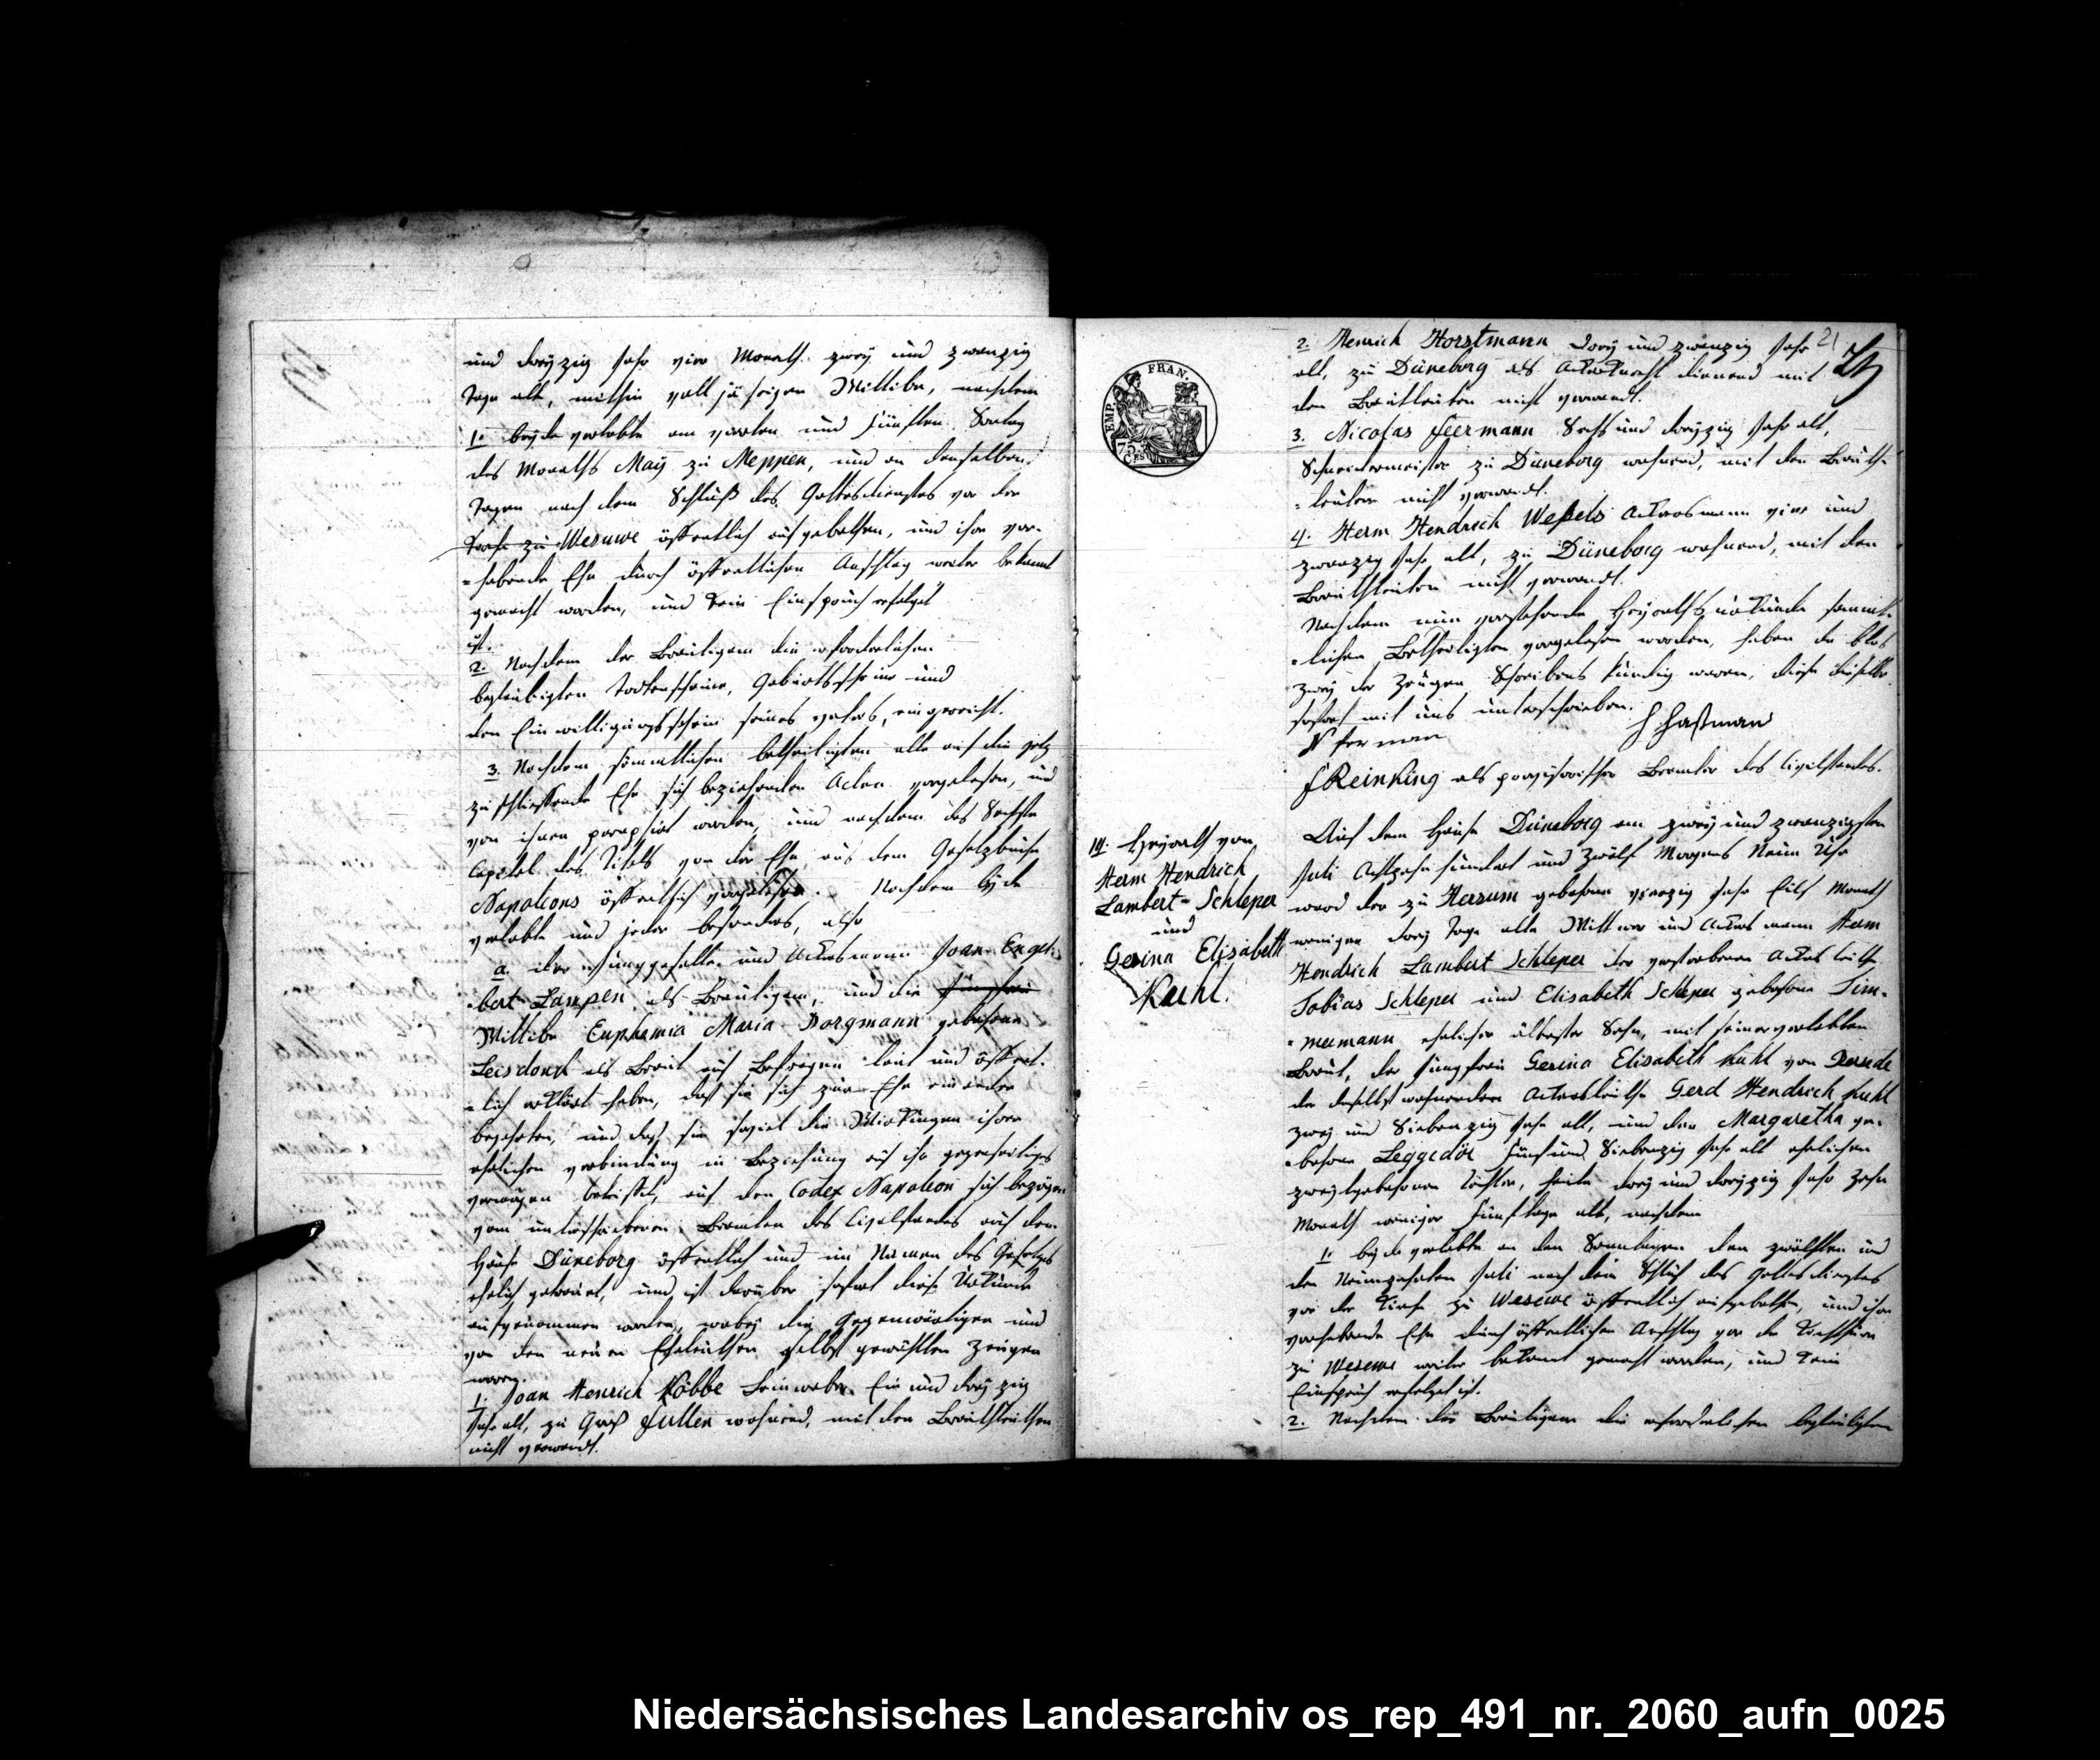 und dreyzig Jahr vier Monath zwey und zwanzig
Tage alt, mithin volljährigen Wittibe, nachdem
1. beyde verlobte am vierten und fünften Sontag
des Monaths May zu Meppen, und an denselben
Tagen nach dem Schluß des Gottesdienstes vor der
Kirche zu Wesuwe öffentlich aufgebothen, und ihre vor-
=habende Ehe durch öffentlichen Anschlag weiter bekannt
gemacht worden, und kein Einspruch erfolget
ist.
2. Nachdem der Bräutigam die erforderlichen
beglaubigten Todtenscheine, Geburtsscheine und
den Einwilligungsschein seines vaters, eingereicht.
3. Nachdem sämmtlichen betheiligten alle auf die jetz
zu schliessende Ehe sich beziehenden Acten vorgelesen, und
von ihnen paraphirt worden, und nachdem das Sechste
Capitel des Titels von der Ehe aus dem Gesetzbuche
Napoleons öffentlich vorgelesen. Nachdem beyde
verlobte und jeder besonders, also
a. der Junggeselle und Ackersmann Joan Engel-
bert Lampen als Bräutigam, und die Jungfrau
Wittibe Euphemia Maria Dorgmann gebohrne
Leisdonck als Braut auf Befragen laut und öffent-
=lich erklärt haben, daß sie sich zur Ehe einander
begehrten, und daß sie soviel die Wirkungen ihrer
ehelichen verbindung in Beziehung auf ihr gegenseitiges
vermögen betrifft, auf den Codex Napoleon sich bezögen
vom unterschriebenen Beamten des Civilstandes auf dem
Hause Düneborg öffentlich und im Namen des Gesetzes
ehelich getrauet, und ist darüber sofort diese Urkunde
aufgenommen worden, wobey die Gegenwärtigen und
von den neuen Eheleuthen selbst gewählten Zeugen
waren.
1. Joan Henrich Köbbe Leinweber Ein und dreyzig
Jahr alt, zu Groß Fullen wohnend, mit den Brautleuthen
nicht verwandt.
21
EMP. FRAN.
75
2. Henrich Horstmann drey und zwanzig Jahr
alt, zu Düneborg als Ackerknecht dienend mit
den Brautleuten nicht verwandt.
3. Nicolas Feermann Sechs und dreyzig Jahr alt,
Schneidermeister zu Düneborg wohnend, mit den Braut-
=leuten nicht verwandt.
4. Herm Hendrich Weßels Ackersmann vier und
zwanzig Jahr alt, zu Düneborg wohnend, mit den
Brautleuten nicht verwandt.
Nachdem nun vorstehende Heyrathsurkunde sämmt-
=lichen Betheiligten vorgelesen worden, haben da blos
zwey der Zeugen Schreibens kundig waren, diese dieselbe
sofort mit uns unterschrieben.
N ferman
F Reinking als provisorischer Beamter des Civilstandes.
14. Heyrath von
Herm Hendrich
Lambert Schleper
und
Gesina Elisabeth
Kuhl.
Auf dem Hause Düneborg am zwey und zwanzigsten
Juli Achtzehnhundert und Zwölf Morgens Neun Uhr
ward der zu Herzum gebohrne vierzig Jahr Eilf Monath
weniger drey Tage alte Wittwer und Ackersmann Herm
Hendrich Lambert Schleper der verstorbenen Ackersleuthe
Tobias Schleper und Elisabeth Schleper gebohrne Tim-
=mermann ehelicher ältester Sohn, mit seiner verlobten
Braut, der Jungfrau Gesina Elisabeth Kuhl von Dersede
der daselbst wohnenden Ackersleuthe Gerd Hendrich Kuhl
zwey und Siebenzig Jahr alt, und der Margaretha ge-
=bohrne Leggedör fünf und Siebenzig Jahr alt ehelichen
zweytgebohrnen Tochter, heute drey und dreyzig Jahr Zehn
Monath weniger fünf Tage alt, nachdem
1. beyde verlobte an den Sonntagen den zwölften und
den Neunzehnten Juli nach dem Schluß des Gottesdienstes
vor der Kirche zu Wesuwe öffentlich aufgebothen, und ihre
vorhabende Ehe durch öffentlichen Anschlag vor der Kirchthüre
zu Wesuwe weiter bekannt gemacht worden, und kein
Einspruch erfolget ist.
2. Nachdem der Bräutigam die erforderlichen beglaubigten
Niedersächsisches Landesarchiv os_rep_491_nr._2060_aufn_0025